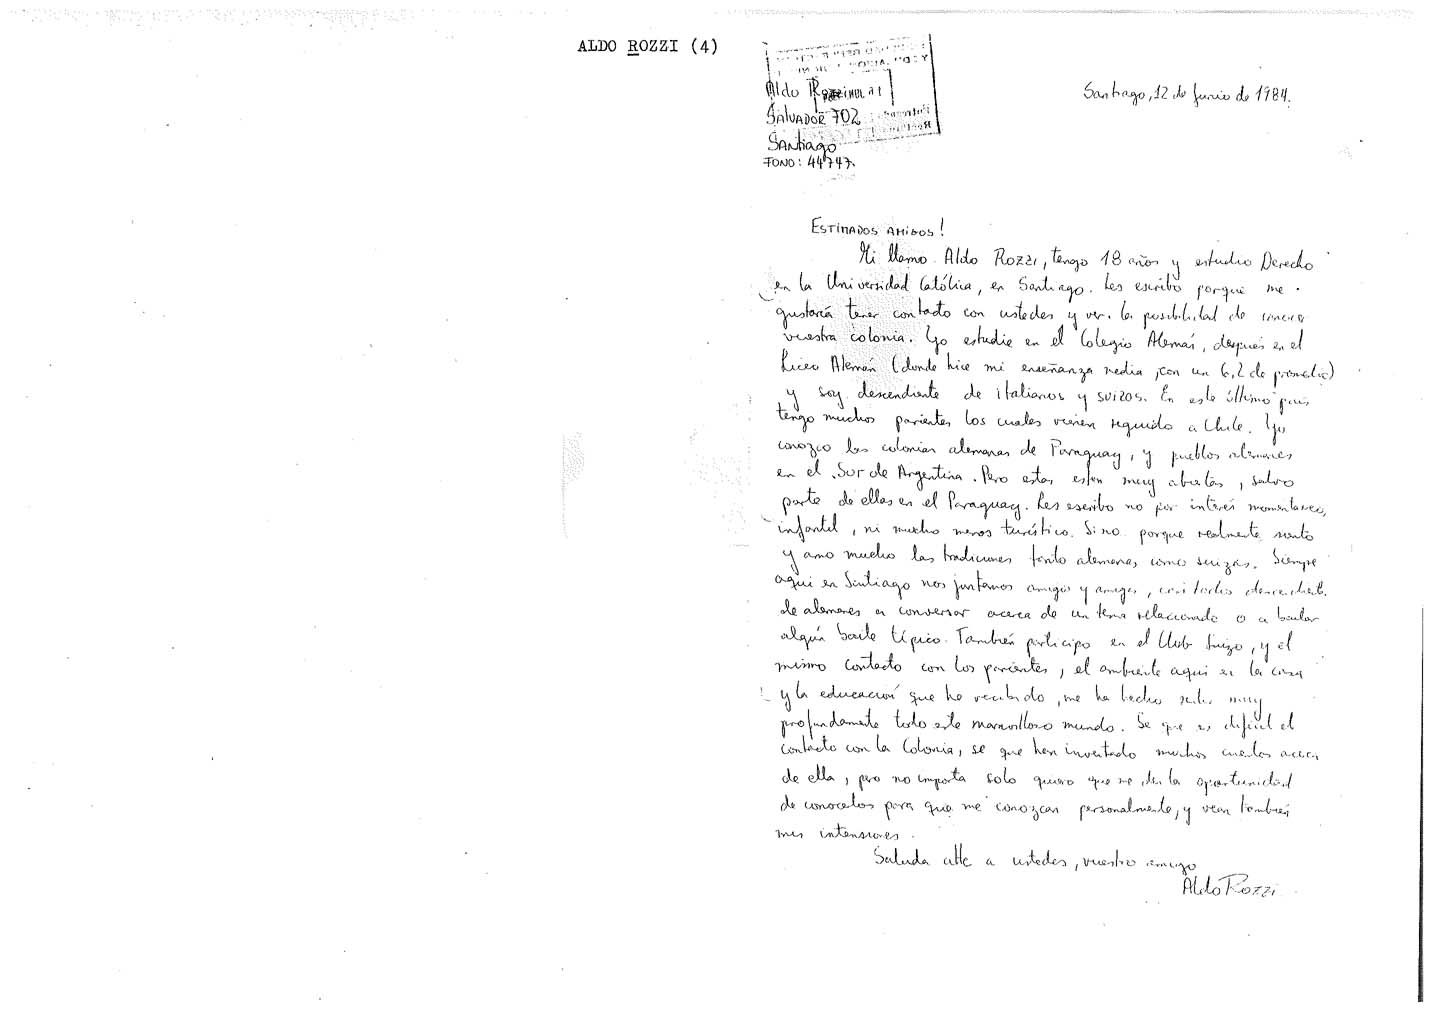 ALDO ROZZI (4)
Aldo Rozzi
SALVADOR 702
Santiago
FONO: 44747.
Santiago, 12 de Junio de 1984.
ESTIMADOS AMIGOS!
Mi llamo Aldo Rozzi, tengo 18 años y estudio Derecho
en la Universidad Católica, en Santiago. Les escribo porque me
gustaría tener contacto con ustedes y ver la posibilidad de conocer
vuestra colonia. Yo estudie en el Colegio Alemán, después en el
Liceo Alemán (donde hice mi enseñanza media, con un 6,2 de promedio)
y soy descendiente de italianos y suizos. En este último país
tengo muchos parientes los cuales vienen seguido a Chile. Yo
conozco las colonias alemanas de Paraguay, y pueblos alemanes
en el Sur de Argentina. Pero estas estan muy abiertas, salvo
parte de ellas en el Paraguay. Les escribo no por interés momentaneo,
infantil, ni mucho menos turístico. Sino porque realmente siento
y amo mucho las tradiciones tanto alemanas como suizas. Siempre
aqui en Santiago nos juntamos amigos y amigas, casi todos descendientes
de alemanes a conversar acerca de un tema relacionado o a bailar
algún baile típico. También participo en el Club Suizo, y el
mismo contacto con los parientes, el ambiente aqui en la casa
y la educación que he recibido, me ha hecho sentir muy
profundamente todo este maravilloso mundo. Se que es dificil el
contacto con la Colonia, se que han inventado muchos cuentos acerca
de ella, pero no importa solo quiero que me den la oportunidad
de conocerlos para que me conozcan personalmente, y vean también
mis intensiones.
Saluda atte a ustedes, vuestro amigo
Aldo Rozzi